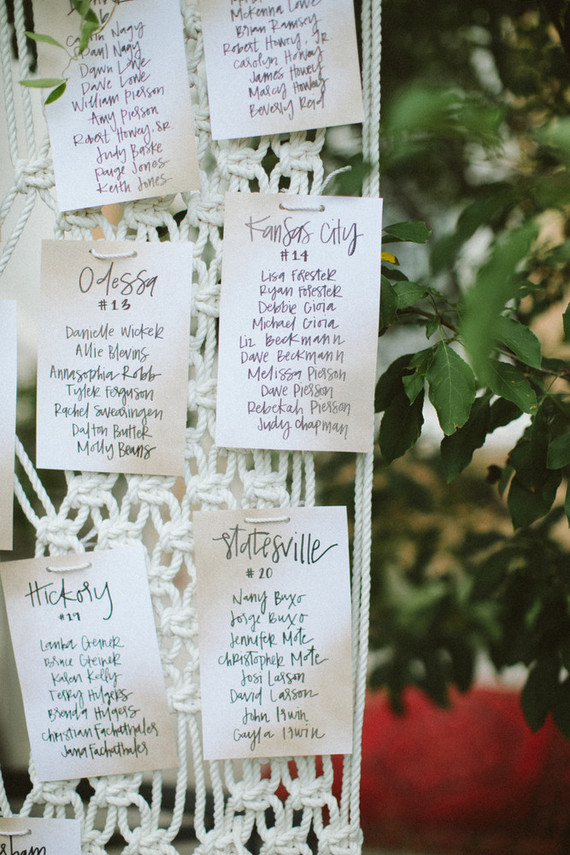 Nagy
Paul Nagy
Dawn Lowe
Dave Lowe
William Pierson
Amy Pierson
Robert Howey, SR
Judy Baske
Paige Jones
Keith Jones
McKenna Lowe
Brian Ramsey
Robert Howey, JR
Carolyn Howey
James Howey
Marcy Howey
Beverly Reid
Odessa
#13
Danielle Wicker
Allie Blevins
Annasophia Robb
Tyler Ferguson
Rachel Swearingen
Dalton Butler
Molly Beans
Kansas City
#14
Lisa Forester
Ryan Forester
Debbie Gioia
Michael Gioia
Liz Beckmann
Dave Beckmann
Melissa Pierson
Dave Pierson
Rebekah Pierson
Judy Chapman
Hickory
#19
Greiner
Bruce Greiner
Karen Kelly
Terry Hulgers
Brenda Hulgers
Christian Fachathaler
Jana Fachathaler
Statesville
#20
Nany Buxo
Jorge Buxo
Jennifer Mote
Christopher Mote
Josi Larson
David Larson
John Irwin
Gayla Irwin